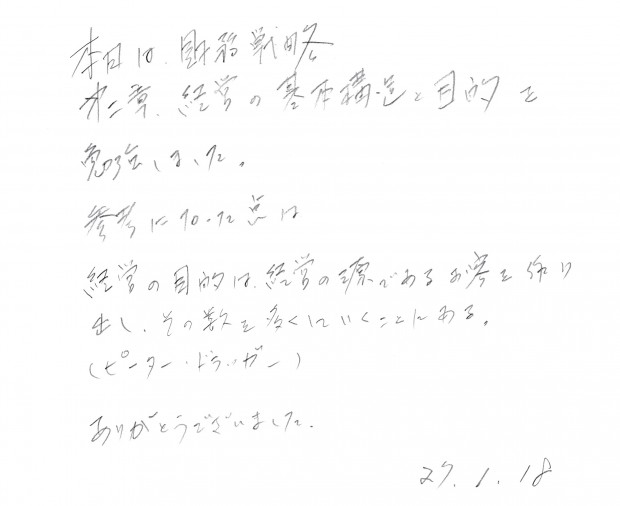 本日は、財務戦略
第二章、経営の基本構造と目的を
勉強しました。
参考になった点は
経営の目的は、経営の源であるお客を作り
出し、その数を多くしていくことにある。
(ピーター・ドラッガー)
ありがとうございました。
27.1.18